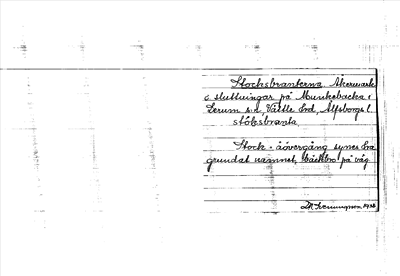 Stocksbranterna. Åkermark
o sluttningar på Munkabacka i
Lerum s:n, Vättle hd, Älfsborgs l.
stòksbranta
Stock - åövergång synes ha
grundat namnet, bäckbro på väg.
1938